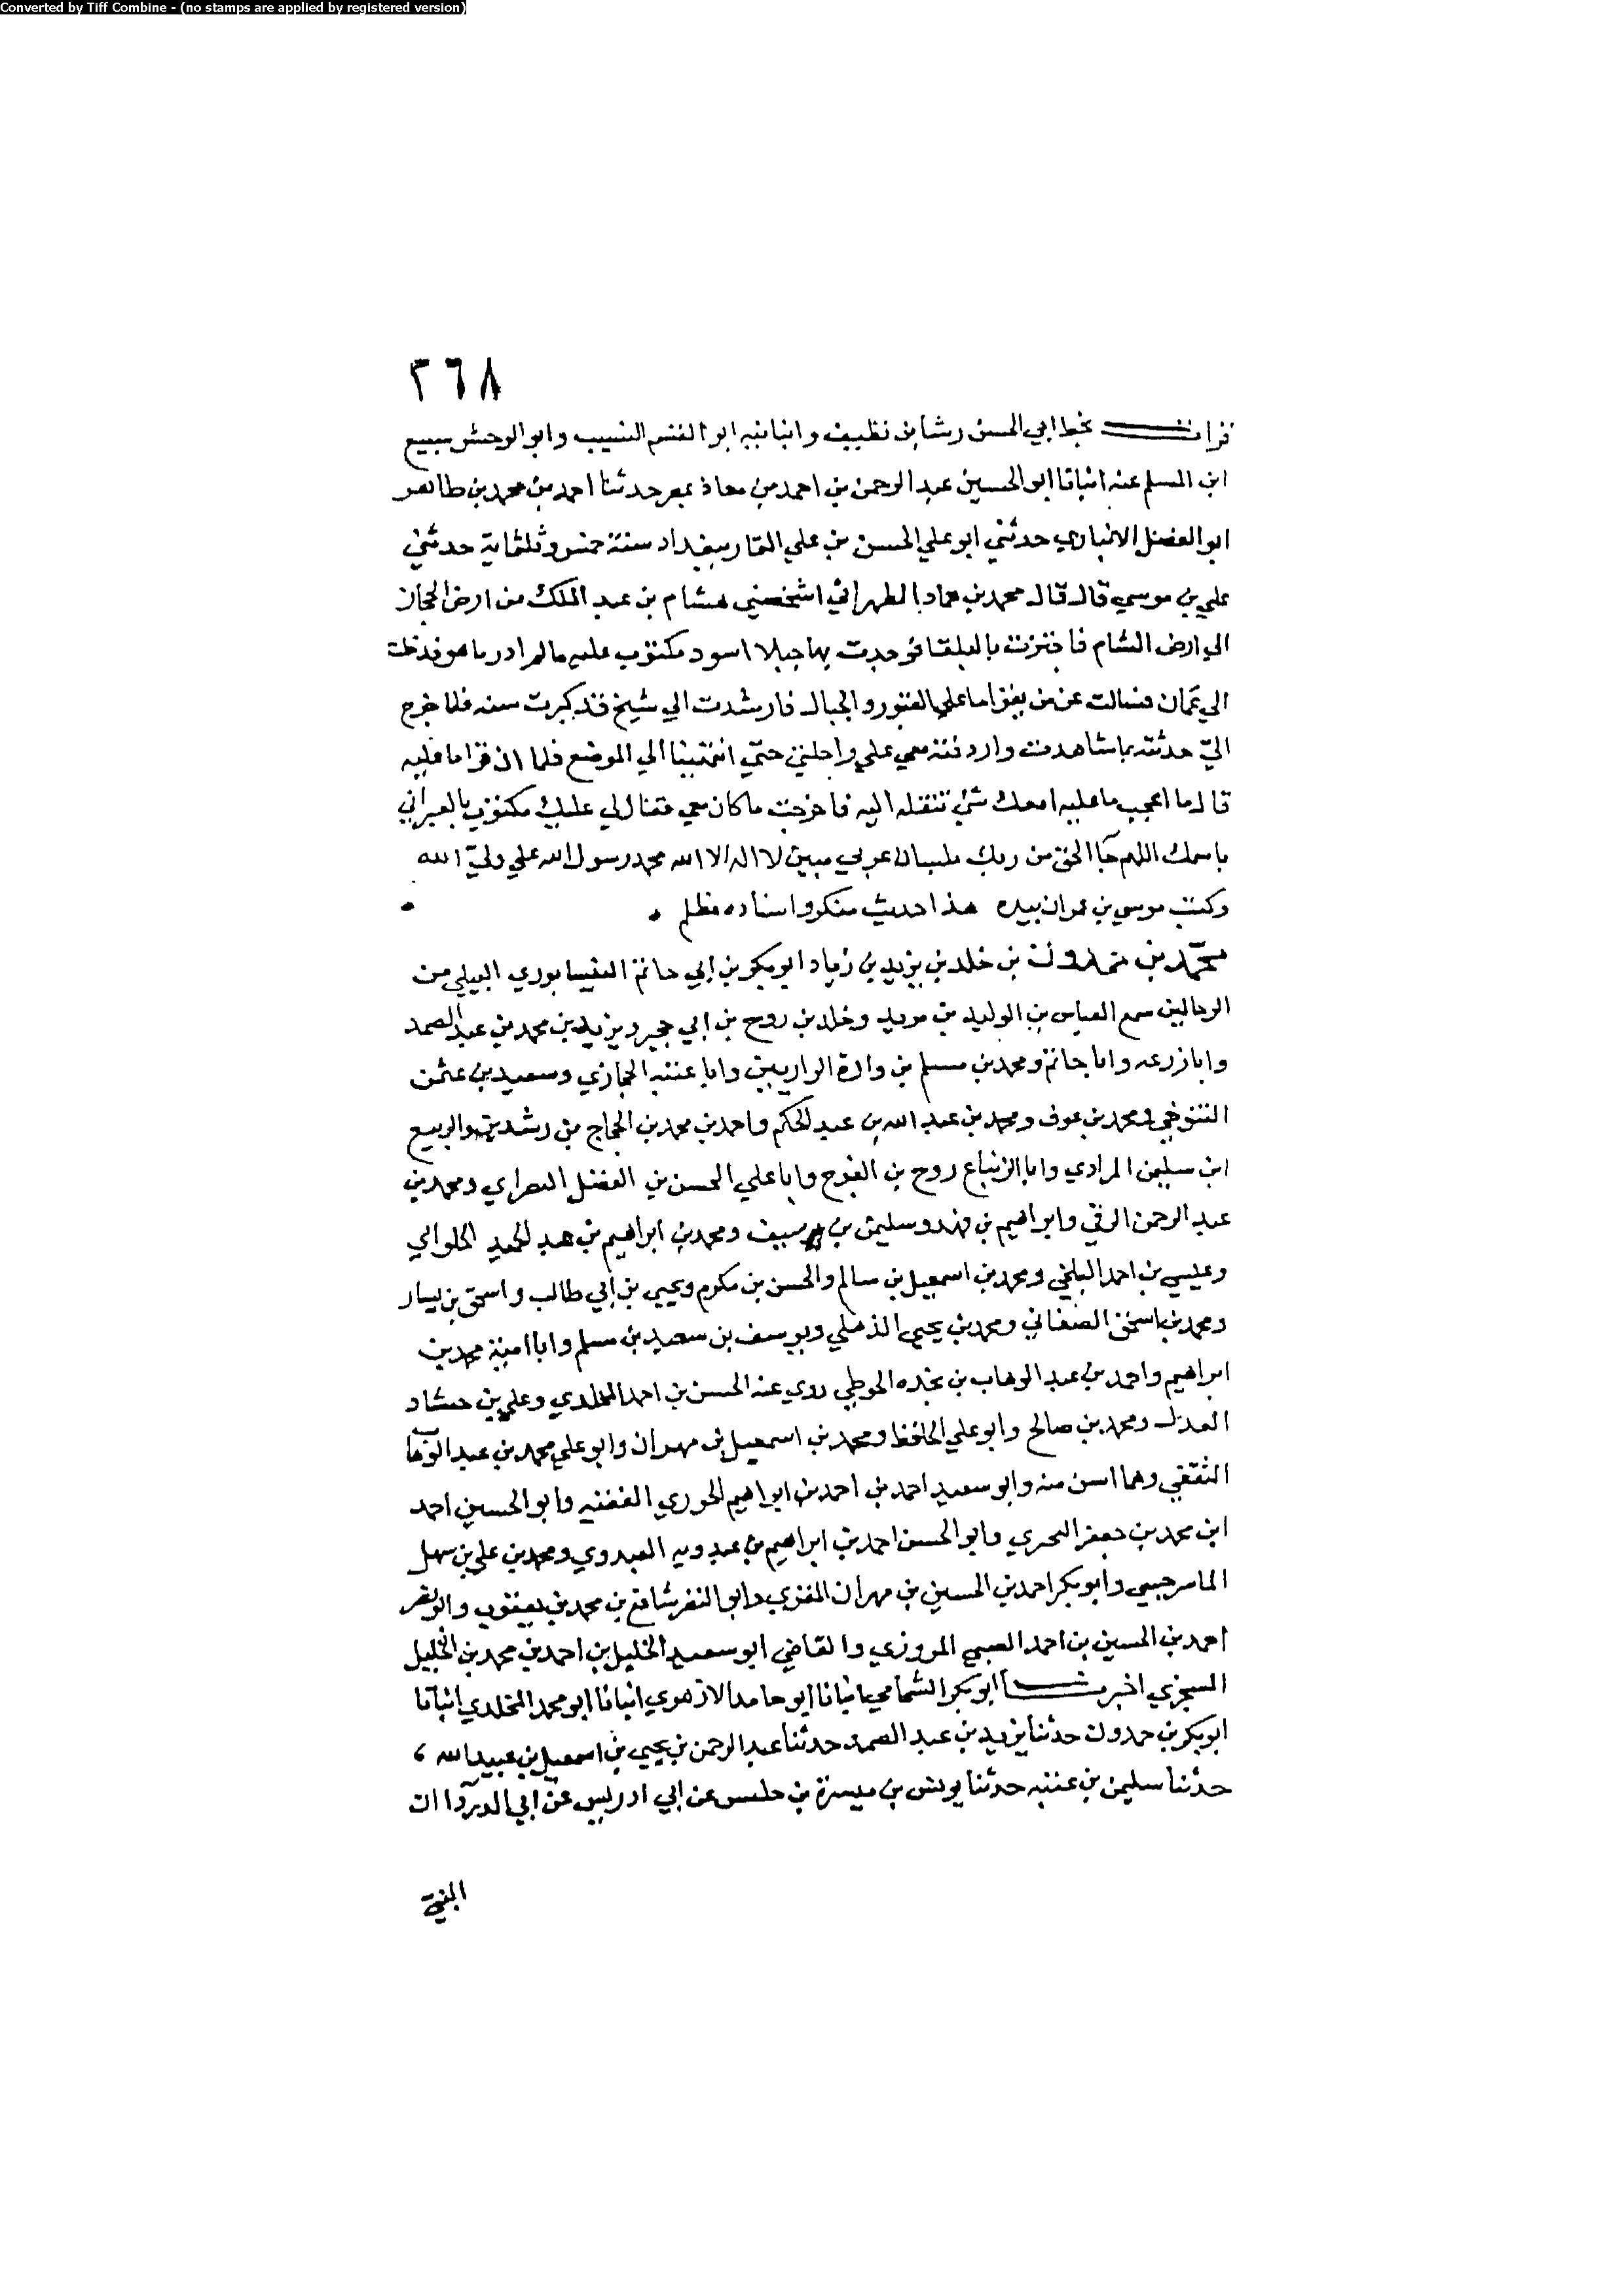 Converted by Tiff Combine - (no stamps are applied by registered version)
٢٦٨
قرات بخط ابي الحسن رشا بن نظيف وانبانيه ابو القسم النسيب وابو الوحش سبيع
ابن المسلم عنه انبانا ابو الحسين عبد الرحمن بن احمد بن معاذ بمصر حدثنا احمد بن محمد بن طاهر
ابو الفضل الانباري حدثني ابو علي الحسن بن علي التمار ببغداد سنة خمس وثلثماية حدثني
علي بن موسي قال قال محمد بن حماد الطهراني اشخصني هشام بن عبد الملك من ارض الحجاز
الي ارض الشام فاجتزت بالبلقا فوجدت بها جبلا اسود مكتوب عليه مالم ادر ما هو فدخلت
الي عمان فسالت عن من يقرا ما علي القبور والجبال فارشدت الي شيخ قد كبرت سنه فلما خرج
اليّ حدثته بما شاهدت واردفته معي علي راحلتي حتي انتهينا الي الموضع فلما ان قرا ما عليه
قال ما اعجب ما عليه امعك شئ تنقله اليه فاخرجت ما كان معي فقال لي عليك مكتوب بالعبراني
باسمك اللهم جا الحق من ربك بلسان عربي مبين لا اله الا الله محمد رسول الله علي وليّ الله
وكتب موسي بن عمران بيده هذا حديث منكر واسناده مظلم
محمد بن حمدون بن خلد بن يزيد بن زياد ابو بكر بن ابي حاتم النيسابوري البيلي من
الرحالين سمع العباس بن الوليد بن مزيد وخلد بن روح بن ابي حجير ويزيد بن محمد بن عبد الصمد
وابا زرعه وابا حاتم ومحمد بن مسلم بن وارة الرازيين وابا عتبه الحجازي وسعيد بن عثمن
التنوخي ومحمد بن عوف ومحمد بن عبد الله بن عبد الحكم واحمد بن محمد بن الحجاج بن رشدين والربيع
ابن سليمن المرادي وابا الزنباع روح بن الفرج وابا علي الحسن بن الفضل البصراي ومحمد بن
عبد الرحمن الرقي وابراهيم بن فهد وسليمن بن سيف ومحمد بن ابراهيم بن عبد الحميد الحلواني
وعيسي بن احمد البلخي ومحمد بن اسمعيل بن سالم والحسن بن مكرم ويحيي بن ابي طالب واسحق بن سيار
ومحمد بن اسحق الصغاني ومحمد بن يحيي الذهلي ويوسف بن سعيد بن مسلم وابا امية محمد بن
ابراهيم واحمد بن عبد الوهاب بن نجده الحوطي روي عنه الحسن بن احمد المخلدي وعلي بن حمشاد
العدل ومحمد بن صالح وابو علي الحافظ ومحمد بن اسمعيل بن مهران وابو علي محمد بن عبد الوهاب
الثقفي وهما اسن منه وابو سعيد احمد بن احمد بن ابراهيم الجوري الفقيه وابو الحسين احمد
ابن محمد بن جعفر البحري وابو الحسن احمد بن ابراهيم بن عبدويه العبدوي ومحمد بن علي بن سهل
الماسرجسي وابو بكر احمد بن الحسين بن مهران المقري وابو النضر شافع بن محمد بن يعقوب وابو نصر
احمد بن الحسين بن احمد الضبي المروزي والقاضي ابو سعيد الخليل بن احمد بن محمد بن الخليل
السجزي اخبرنا ابو بكر الشحامي انبانا ابو حامد الازهري انبانا ابو محمد المخلدي انبانا
ابو بكر بن حمدون حدثنا يزيد بن عبد الصمد حدثنا عبد الرحمن بن يحيي بن اسمعيل بن عبيد الله
حدثنا سليمن بن عتبه حدثنا يونس بن ميسرة بن حلبس عن ابي ادريس عن ابي الدردا ان
النبي